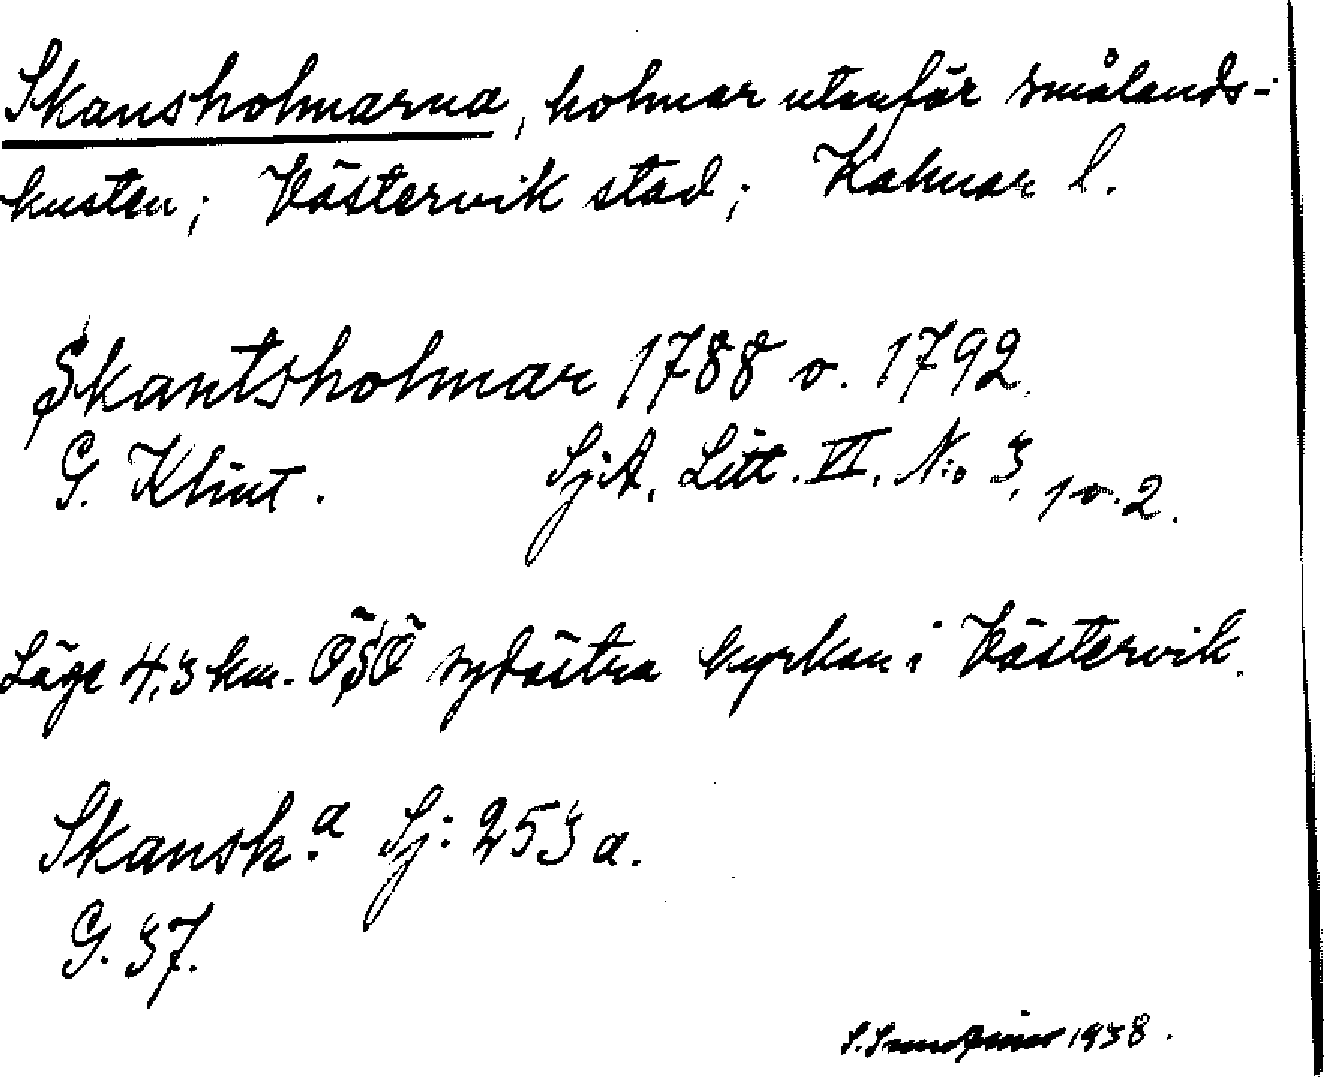 Skansholmarna, holmar utanför smålands-
kusten; Västervik stad; Kalmar l.
Skantsholmar 1788 o. 1792.
G. Klint. SjA. Litt. VI. N:o 3, 1 o. 2.
Läge 4,3 km. ÖSÖ sydöstra kyrkan i Västervik.
Skansh.a Sj: 253 a.
G. 37.
S. 1938.